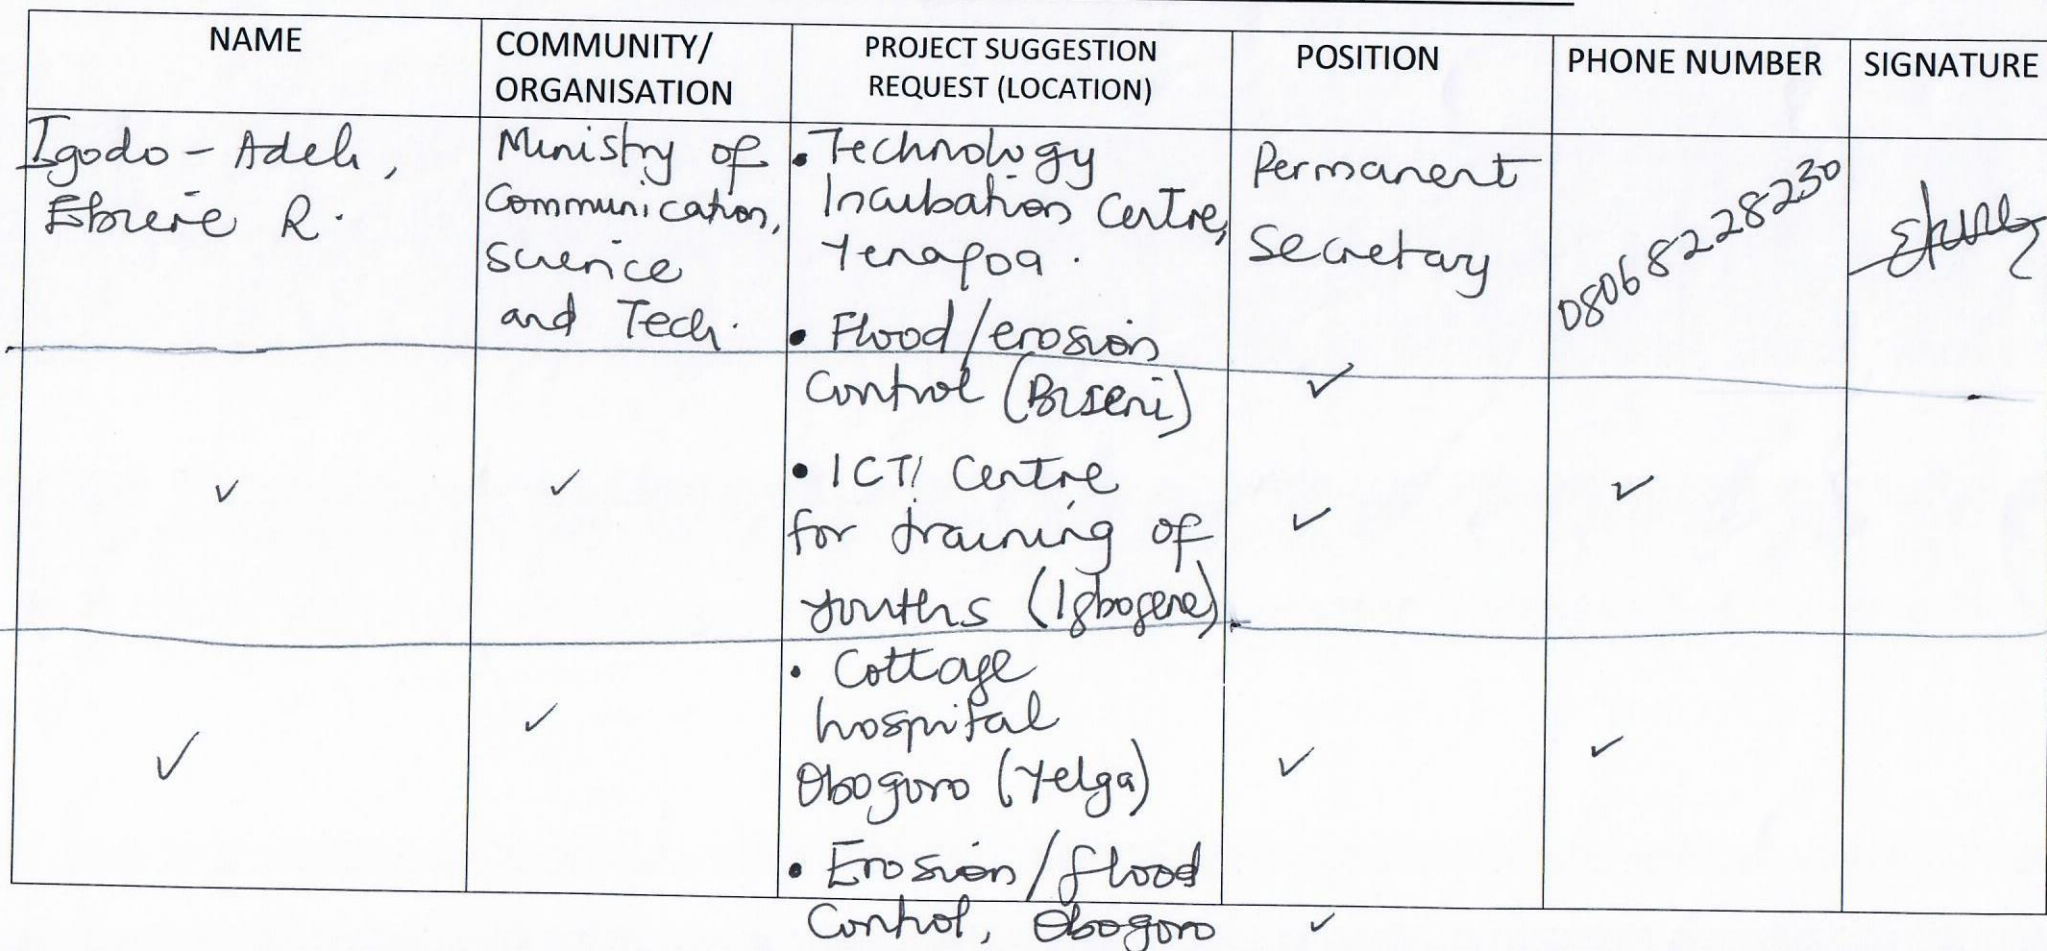 NAME
COMMUNITY/
ORGANISATION
PROJECT SUGGESTION
REQUEST (LOCATION)
POSITION
PHONE NUMBER
SIGNATURE
Igodo - Adeh,
R.
Ministry of
Communication,
Science
and Tech.
• Technology
Incubation Centre,
Yenagoa.
Permanent
Secretary
08068228230
• Flood/erosion
Control (Biseni)
✓
✓
✓
• ICT Centre
for training of
youths (Igbogene)
✓
✓
✓
✓
• Cottage
hospital
Obogoro (Yelga)
✓
✓
• Erosion/flood
Control, Obogoro
✓